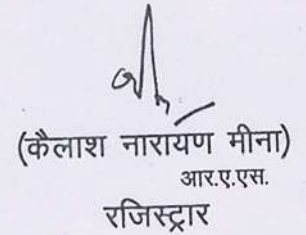 (कैलाश नारायण मीना)
आर.ए.एस.
रजिस्ट्रार